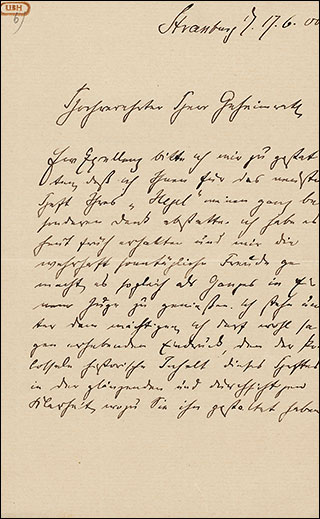 UBH
6
Strassburg i/. 17.6.00
Hochverehrter Herr Geheimrath
Ew Exzellenz bitte ich mir zu gestat
ten, daß ich Ihnen für das neueste
Heft Ihres „Hegel“ meinen ganz be
sonderen Dank abstatte. Ich habe es
heut früh erhalten und mir die
wahrhaft sonntägliche Freude ge
macht es sogleich als Ganzes in Ei
nem Zuge zu genießen. Ich stehe un
ter dem mächtigen, ich darf wohl sa
gen erhebenden Eindruck, den der ko
lossale historische Inhalt dieses Heftes
in der glänzenden und durchsichtigen
Klarheit, wozu Sie ihn gestaltet haben